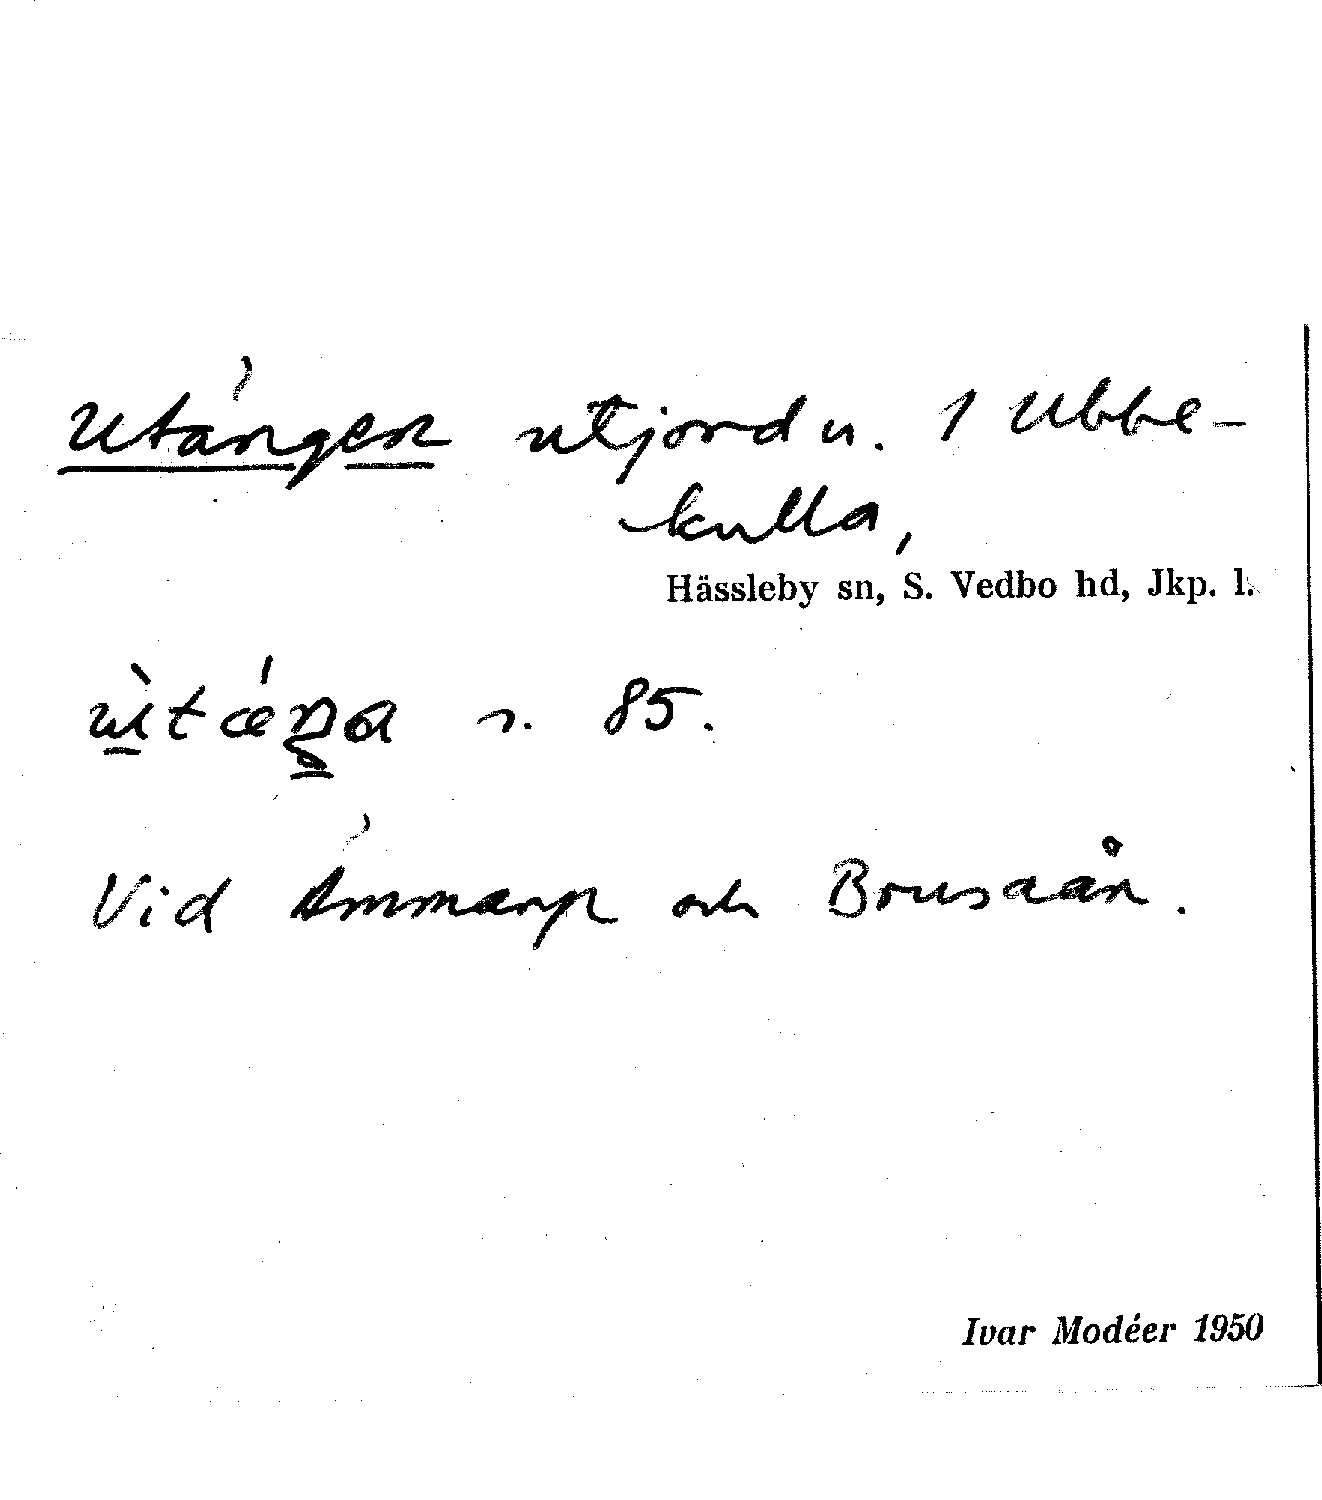 Utängen utjord u. 1 Ubbe-
kulla,
Hässleby sn, S. Vedbo hd, Jkp. l.
s. 85.
Vid Ämmarp och Brusaån.
Ivar Modéer 1950